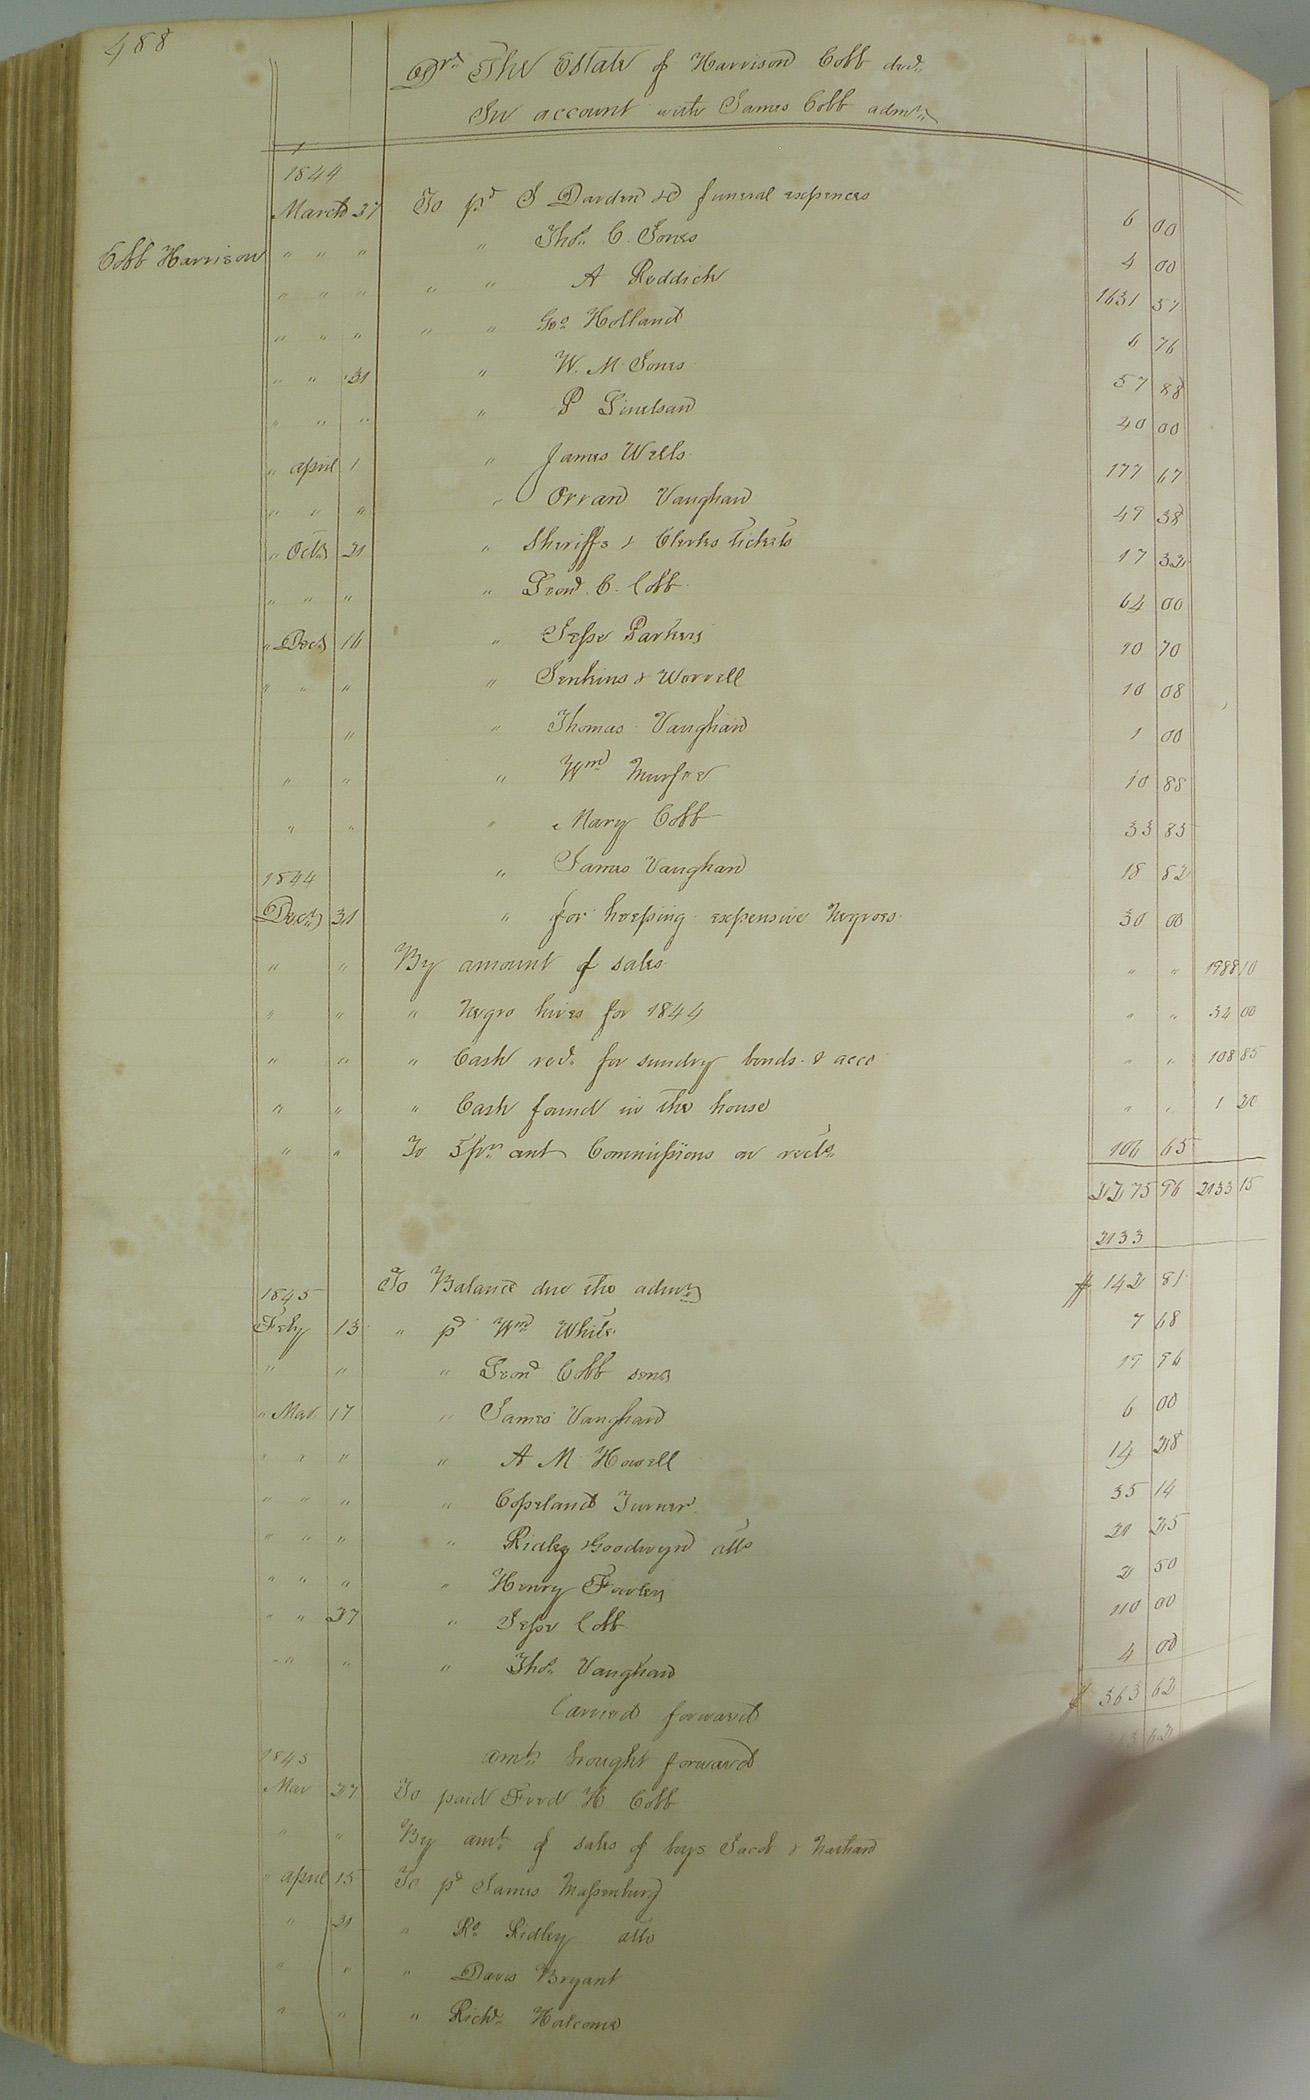 488
Dr. The Estate of Harrison Cobb decd.
In account with James Cobb admr.
1844
March 27 To pd J Darden &c funeral expences 6 00
Cobb Harrison " " " " Thos. C. Jones 4 00
" " " " " A Reddick 1631 57
" " " " " Geo Holland 6 76
" " 31 " W. M. Jones 57 88
" " " " P 40 00
" april 1 " James Wells 177 67
" " " " Orran Vaughan 49 38
" Octr 21 " Sheriffs & Clerks Tickets 17 32
" " " " Leond. C. Cobb 64 00
" Decr 16 " Jesse Parker 10 70
" " " " Jenkins & Worrell 10 08
" " Thomas Vaughan 1 00
" " " Wm Murfee 10 88
" " " Mary Cobb 33 85
" James Vaughan 18 82
1844
Decr 31 " for keeping expensive Negroes 30 00
" " By amount of sales " " 1988 10
" " " Negro hires for 1844 " " 34 00
" " " Cash recd. for sundry bonds & accs " " 108 85
" " " Cash found in the house " " 1 20
" " To 5 pr cent Commissions on rects. 106 65
2275 96 2133 15
2133
To Balance due the admr $ 142 81
1845
Feby 13 " pd Wm White 7 68
" " " Leond Cobb senr 19 96
" Mar 17 " James Vaughan 6 00
" " " " A M Howell 14 28
" " " " Copeland Turner 35 14
" " " " Ridley & Goodwyn atto 21 25
" " " " Henry Farley 2 50
" " 27 " Jesse Cobb 110 00
" " " " Thos. Vaughan 4 00
Carried forward $ 363 62
amt. brought forward 363 62
1845
Mar 27 To paid Fred H Cobb
" " By amt. of sales of boys Jacob & Nathan
" april 15 To pd James Massenburg
" 21 " Ro. Ridley atto
" " " Davis Bryant
" " " Richd. Halcome